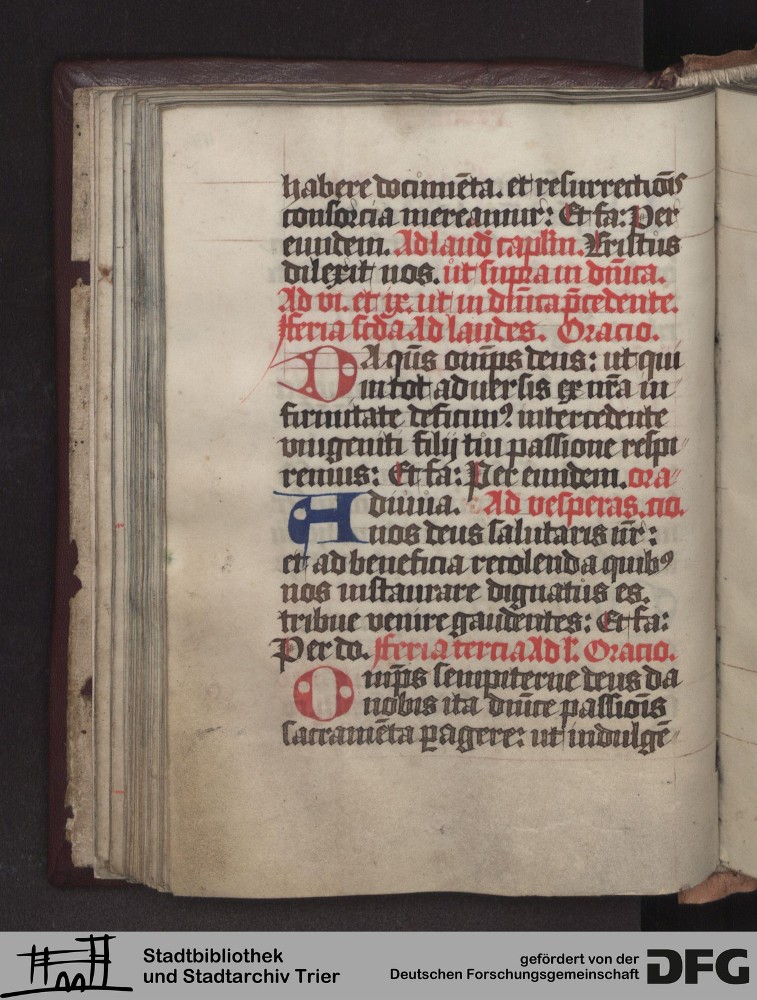 habere documēta. et resurrectiōis
consorcia mereamur: Et fa: Per
eundem. Ad laud̄ capl̄m. Xristus
dilexit nos. ut supra in dn̄ica.
Ad vi. et ix. ut in dn̄ica p̄cedente.
Feria scd̄a Ad laudes. Oracio.
DA qūs omp̄s deus: ut qui
in tot aduersis ex nr̄a in
firmitate deficimꝰ intercedente
vnigeniti filij tui passione respi
remus: Et fa: Per eundem. ora
Adiuua. Ad vesperas. cio.
nos deus salutaris nr̄:
et ad beneficia recolenda quibꝰ
nos instaurare dignatus es.
tribue venire gaudentes: Et fa:
Per do. Feria tercia Ad l. Oracio.
Omp̄s sempiterne deus da
nobis ita dn̄ice passiōis
sacramēta ꝑagere: ut indulgē
Stadtbibliothek
und Stadtarchiv Trier
gefördert von der
Deutschen Forschungsgemeinschaft
DFG